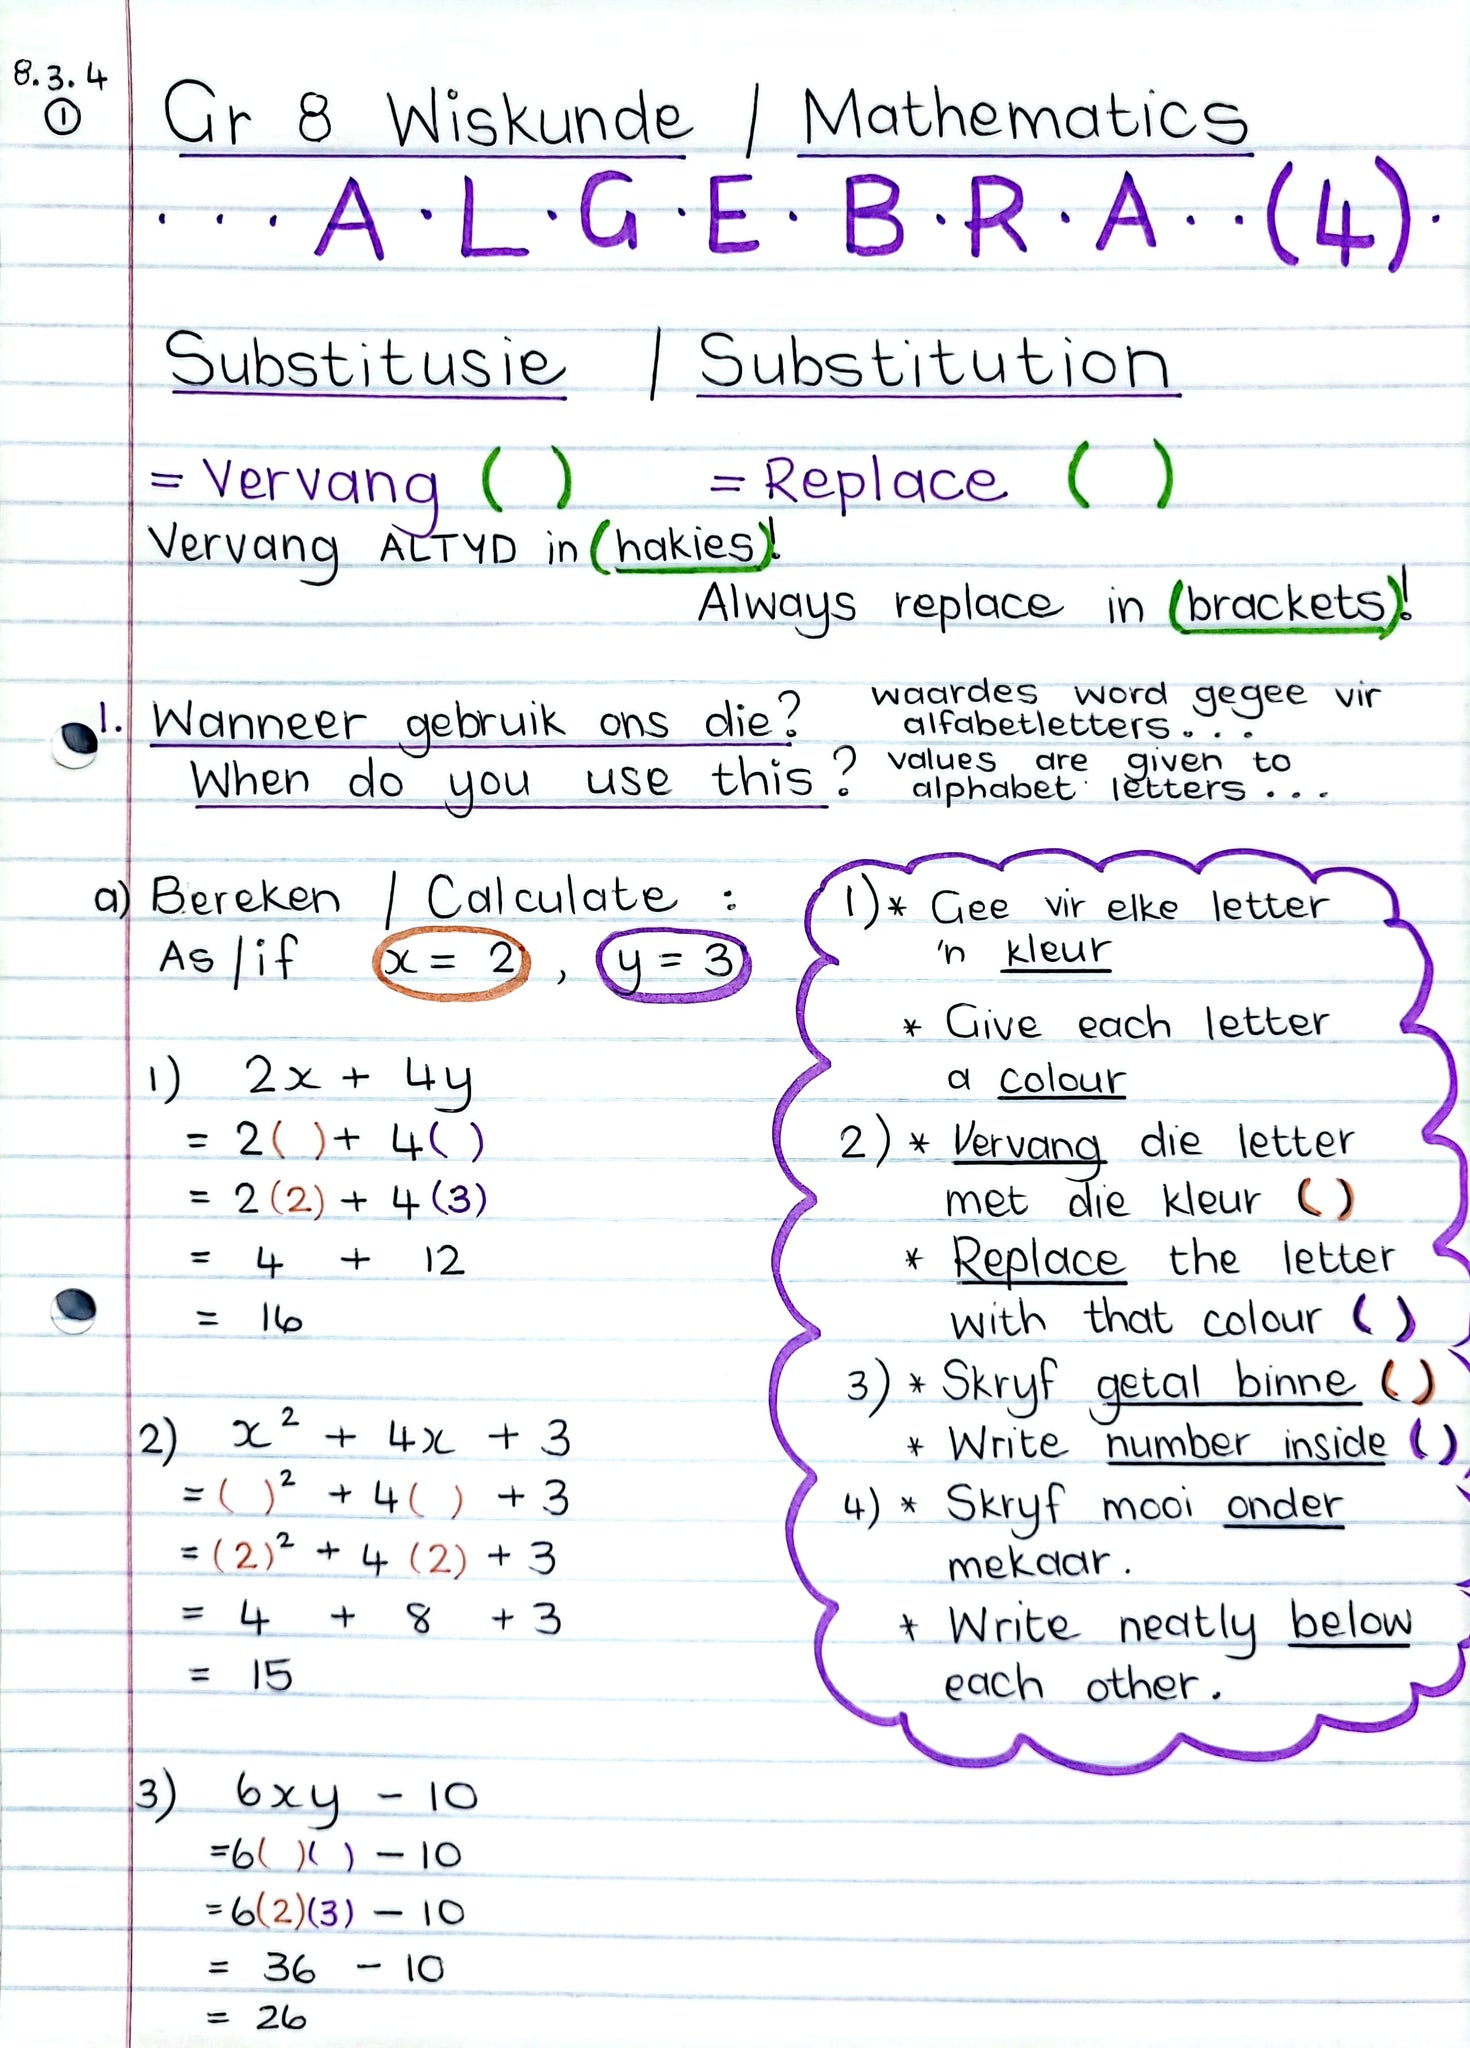 8.3.4
①
Gr 8 Wiskunde / Mathematics
...A.L.G.E.B.R.A..(4).
Substitusie / Substitution
= Vervang ( ) = Replace ( )
Vervang ALTYD in (hakies)!
Always replace in (brackets)!
1. Wanneer gebruik ons die? waardes word gegee vir
alfabetletters...
When do you use this? values are given to
alphabet letters...
a) Bereken / Calculate :
As/if x = 2 , y = 3
1) 2x + 4y
= 2( ) + 4( )
= 2(2) + 4(3)
= 4 + 12
= 16
2) x² + 4x + 3
= ( )² + 4( ) + 3
= (2)² + 4(2) + 3
= 4 + 8 + 3
= 15
3) 6xy - 10
=6( )( ) - 10
=6(2)(3) - 10
= 36 - 10
= 26
1)* Gee vir elke letter
'n kleur
* Give each letter
a colour
2)* Vervang die letter
met die kleur ( )
* Replace the letter
with that colour ( )
3)* Skryf getal binne ( )
* Write number inside ( )
4)* Skryf mooi onder
mekaar.
* Write neatly below
each other.